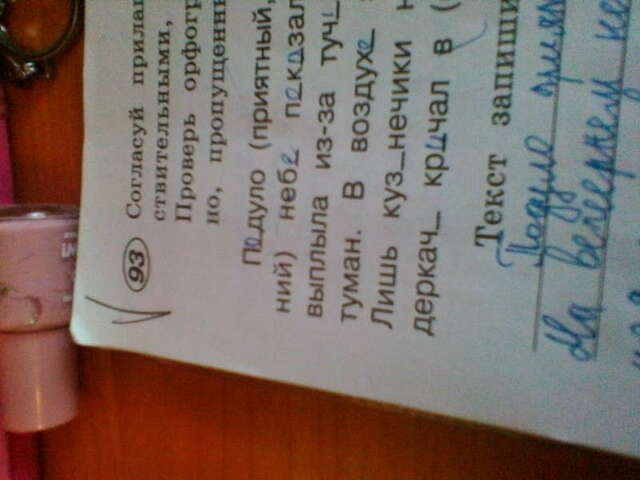 93 Согласуй прила
ствительными,
Проверь орфогр
но, пропущенн
Подуло (приятный,
ний) небе показал
выплыла из-за туч_
туман. В воздухе з
Лишь куз_нечики н
деркач_ кричал в (
Текст запиши
Подуло прият
На вечернем не